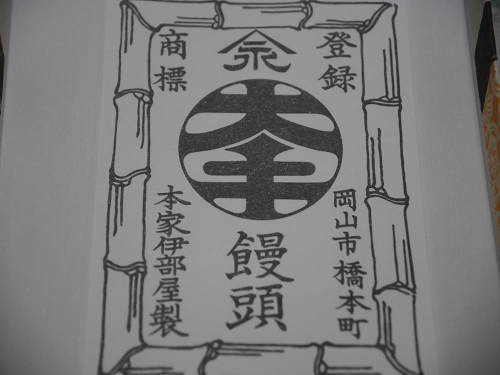 登録
商標
大手
饅頭
岡山市橋本町
本家伊部屋製